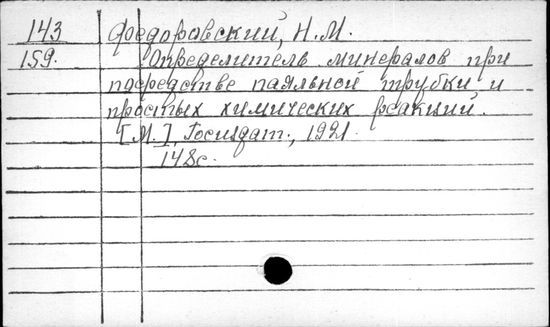 143 Федоровский, Н.М.
159. Определитель минералов при
посредстве паяльной трубки и
простых химических реакций.
[М.], Госиздат., 1921.
148с.